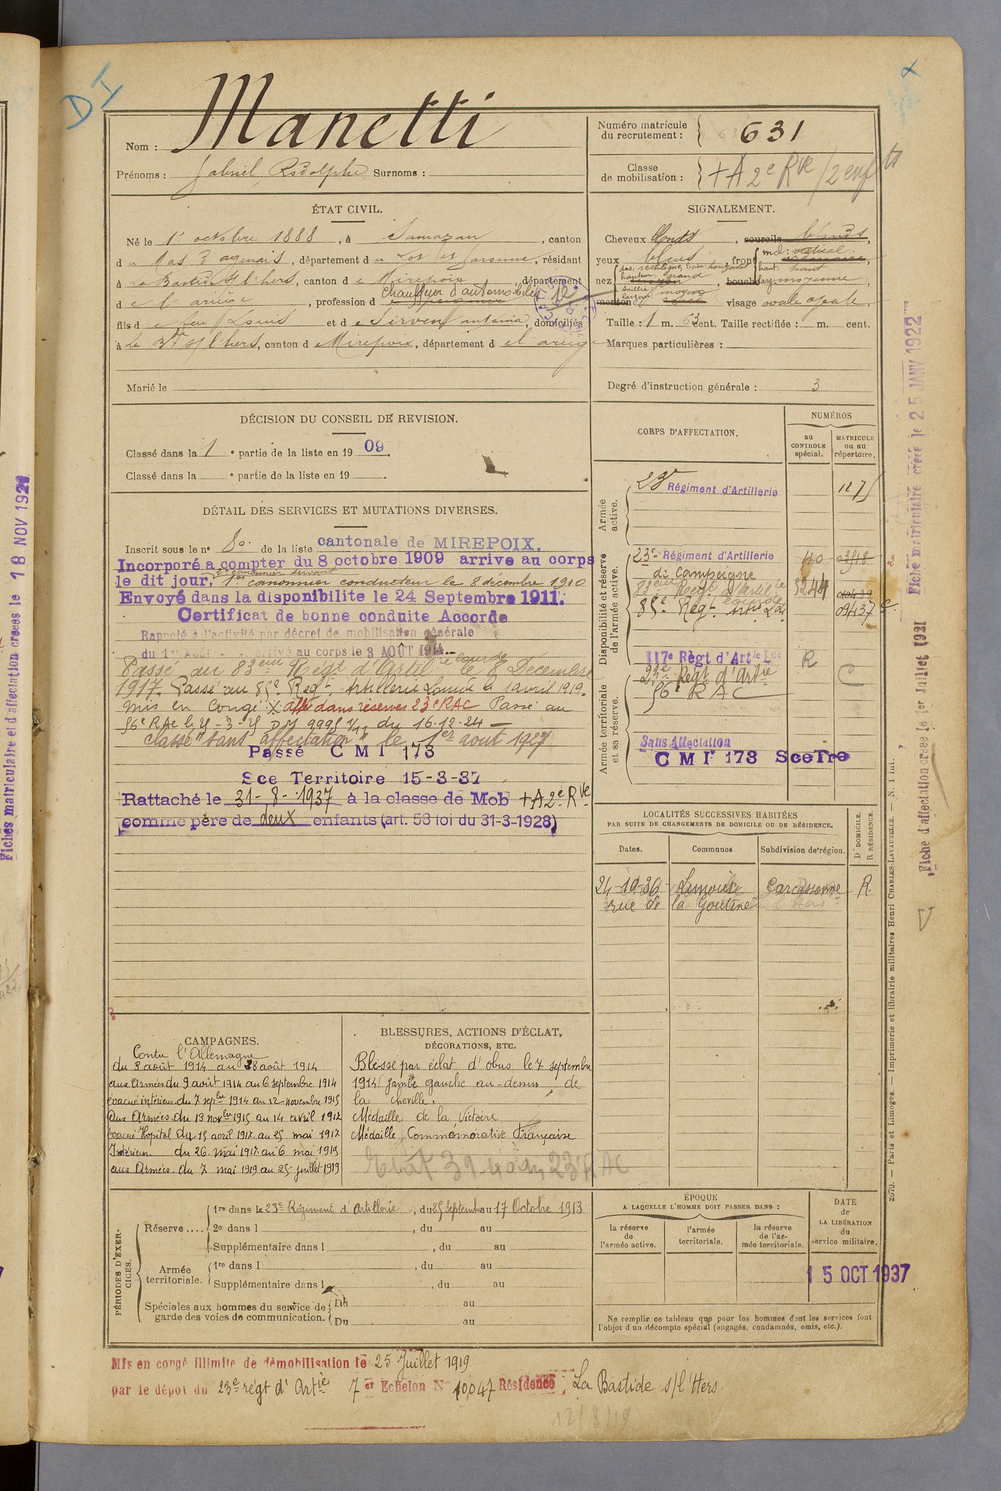 DI
Nom : Manetti
Prénoms : Gabriel Rodolphe Surnoms :
Numéro matricule du recrutement : 631
Classe de mobilisation : +A 2e Rve / 2 enfts
ÉTAT CIVIL.
Né le 1er octobre 1888, à Samazan, canton
d u Mas d'agenais, département d u Lot et Garonne, résidant
à La Bastide s/l'hers, canton d e Mirepoix, département
d e l'ariège, profession d Chauffeur d'automobiles
fils d e feu Louis et d e Sirven antonia, domiciliés
à La Bde s/l'hers, canton d e Mirepoix, département d e l'ariège
Marié le
SIGNALEMENT.
Cheveux blonds, sourcils blonds,
yeux bleus, front
nez
bouche moyenne,
menton visage ovale
Taille : 1 m. 63 cent. Taille rectifiée : m. cent.
Marques particulières :
Degré d'instruction générale : 3
DÉCISION DU CONSEIL DE REVISION.
Classé dans la 1 e partie de la liste en 19 09.
Classé dans la e partie de la liste en 19 .
DÉTAIL DES SERVICES ET MUTATIONS DIVERSES.
Inscrit sous le n° 80 de la liste cantonale de MIREPOIX.
Incorporé a compter du 8 octobre 1909 arrive au corps
le dit jour. 1er canonnier conducteur le 8 décembre 1910
Envoyé dans la disponibilite le 24 Septembre 1911.
Certificat de bonne conduite Accorde
Rappelé à l'activité par décret de mobilisation générale
du 1er Août 1914 arrivé au corps le 3 AOÛT 1914.
Passé au 83ème Régt d'Artie lourde le 2 Décembre
1917. Passé au 85e Regt Artillerie Lourde le 1 avril 1919.
mis en congé X affé dans réserves 23e RAC Passé au
56e RAC le 4-3-4 DM 9995 1/11 du 16.12.24
Classé "sans affectation" le 1er aout 1927
Passé C M I 173
Sce Territoire 15-3-37
Rattaché le 31-8-1937 à la classe de Mob +A 2e Rve
comme père de deux enfants (art. 58 loi du 31-3-1928)
CORPS D'AFFECTATION.
NUMÉROS
au CONTROLE spécial.
MATRICULE ou au répertoire.
Armée active.
23e Régiment d'Artillerie 1275
Disponibilité et réserve de l'armée active.
23e Régiment d'Artillerie
de Campagne
85e Regt
117e Règt d'Artie Lde R
Armée territoriale et sa réserve.
23e Regt d'Artie
56e RAC
Sans Affectation
C M Ir 173 SceTre
LOCALITÉS SUCCESSIVES HABITÉES
PAR SUITE DE CHANGEMENTS DE DOMICILE OU DE RÉSIDENCE.
Dates. Communes. Subdivision de région. D. DOMICILE. R RÉSIDENCE.
24-10-36 Limoux Carcassonne R.
rue de la Goutine
CAMPAGNES.
Contre l'Allemagne
du 3 août 1914 au 8 août 1914
aux Armées du 9 août 1914 au 6 septembre 1914
évacué intérieur du 7 septbre 1914 au 12 novembre 1915
aux Armées du 13 novbre 1915 au 14 avril 1917
évacué Hopital du 15 avril 1917 au 25 mai 1917
Intérieur du 26 mai 1917 au 6 mai 1919
aux Armées du 7 mai 1919 au 25 juillet 1919
BLESSURES, ACTIONS D'ÉCLAT,
DÉCORATIONS, ETC.
Blessé par éclat d'obus le 7 septembre
1914 jambe gauche au-dessus de
la cheville.
Médaille de la Victoire
Médaille Commémorative Française
PÉRIODES D'EXERCICES.
Réserve .... 1re dans le 23e Régiment d'Artillerie, du 25 septembre au 17 Octobre 1913
2e dans l , du au
Supplémentaire dans l , du au
Armée territoriale. 1re dans l , du au
Supplémentaire dans l , du au
Spéciales aux hommes du service de garde des voies de communication. Du au
Du au
ÉPOQUE
A LAQUELLE L'HOMME DOIT PASSER DANS :
la réserve de l'armée active.
l'armée territoriale.
la réserve de l'armée territoriale.
DATE de LA LIBÉRATION du service militaire.
15 OCT 1937
Ne remplir ce tableau que pour les hommes dont les services font l'objet d'un décompte spécial (engagés, condamnés, omis, etc.).
Mis en congé illimité de démobilisation le 25 Juillet 1919
par le dépot du 23e régt d'Artie 7er Echelon N° 10047 Résidence La Bastide s/l'Hers.
12/8/19
Fiches matriculaire et d'affection creées le 18 NOV 1921
Fiche matriculaire creée le 25 JANV 1922
Fiche d'affectation creée le 1er Juillet 1921
2679. — Paris et Limoges. — Imprimerie et librairie militaires Henri CHARLES-LAVAUZELLE. — N. 1 int.